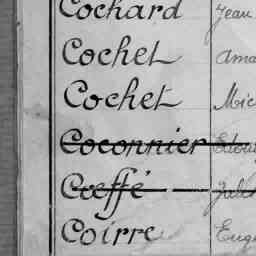 Cochard Jean
Cochet Ama
Cochet Mic
Coconnier Edou
Coeffé Jule
Coirre Euge